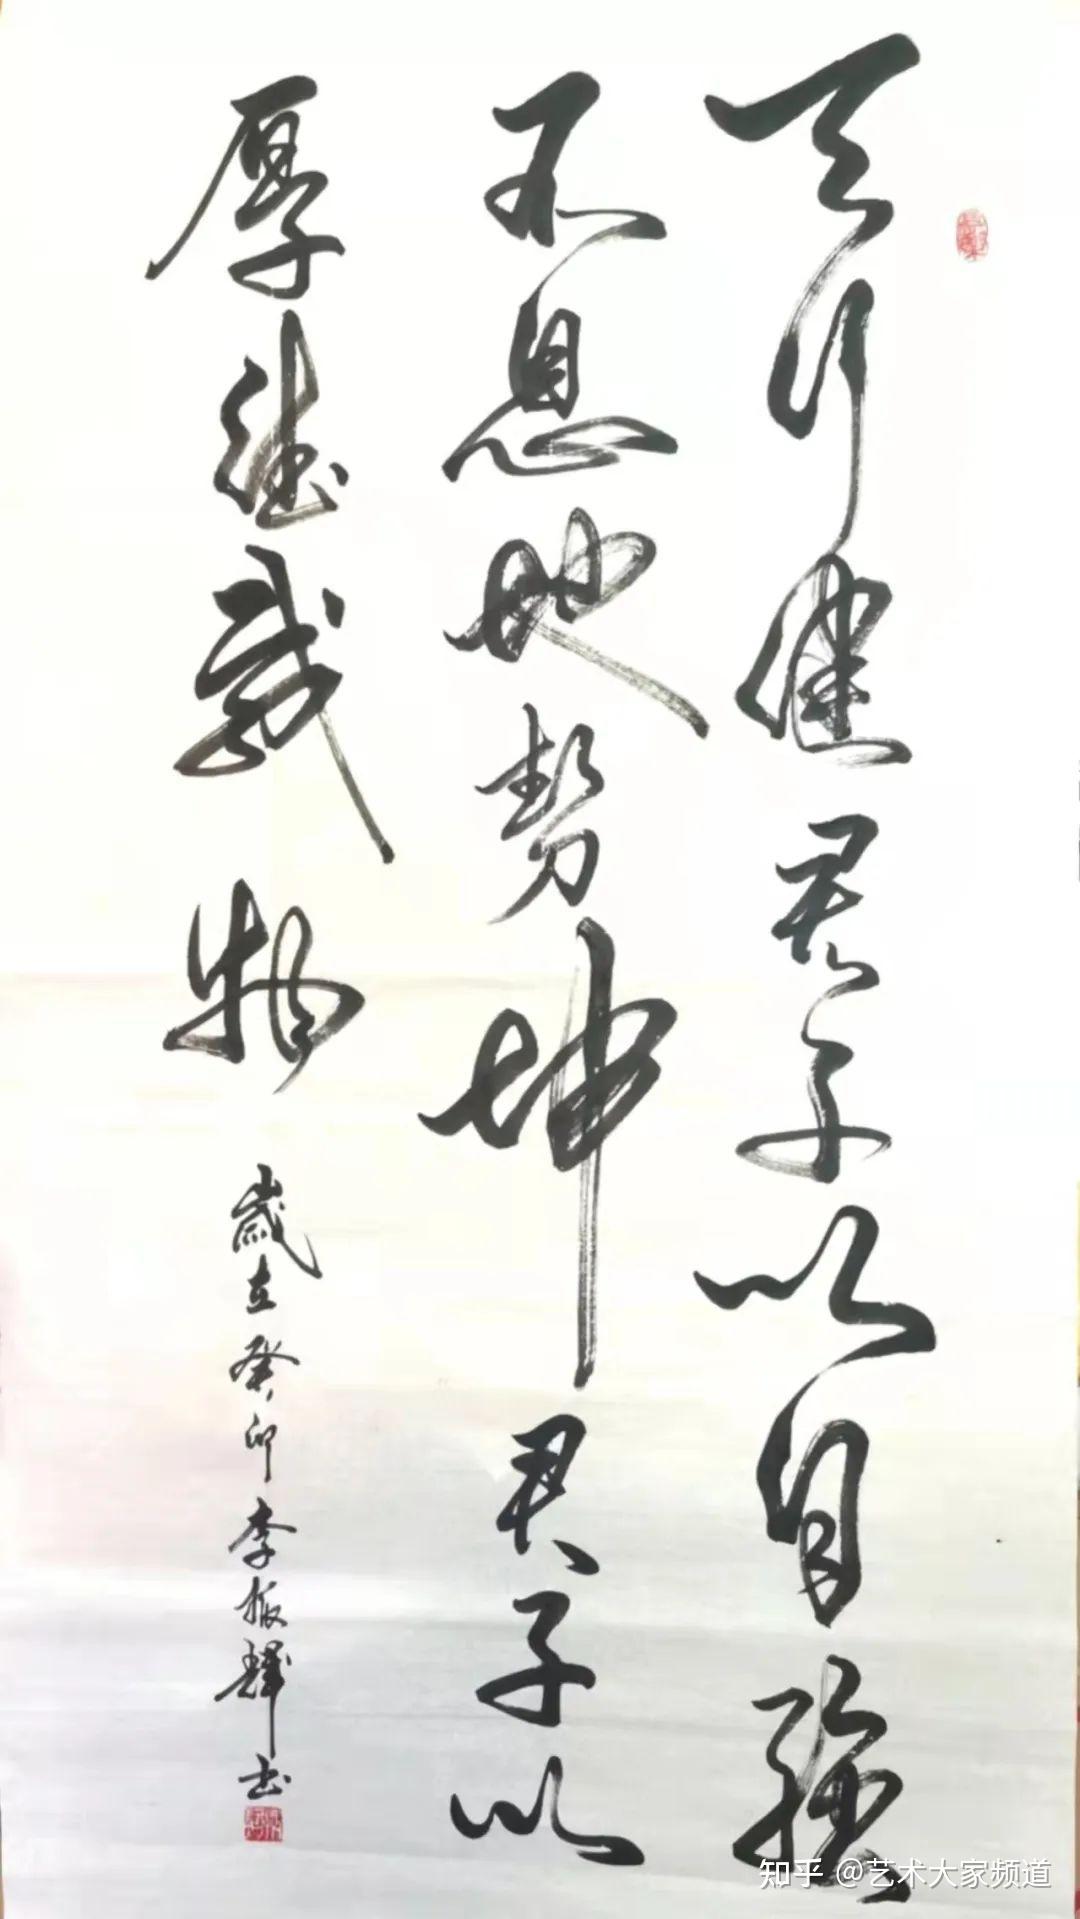 天行健君子以自强
不息地势坤君子以
厚德载物
岁在癸卯李振辉书
知乎 @艺术大家频道